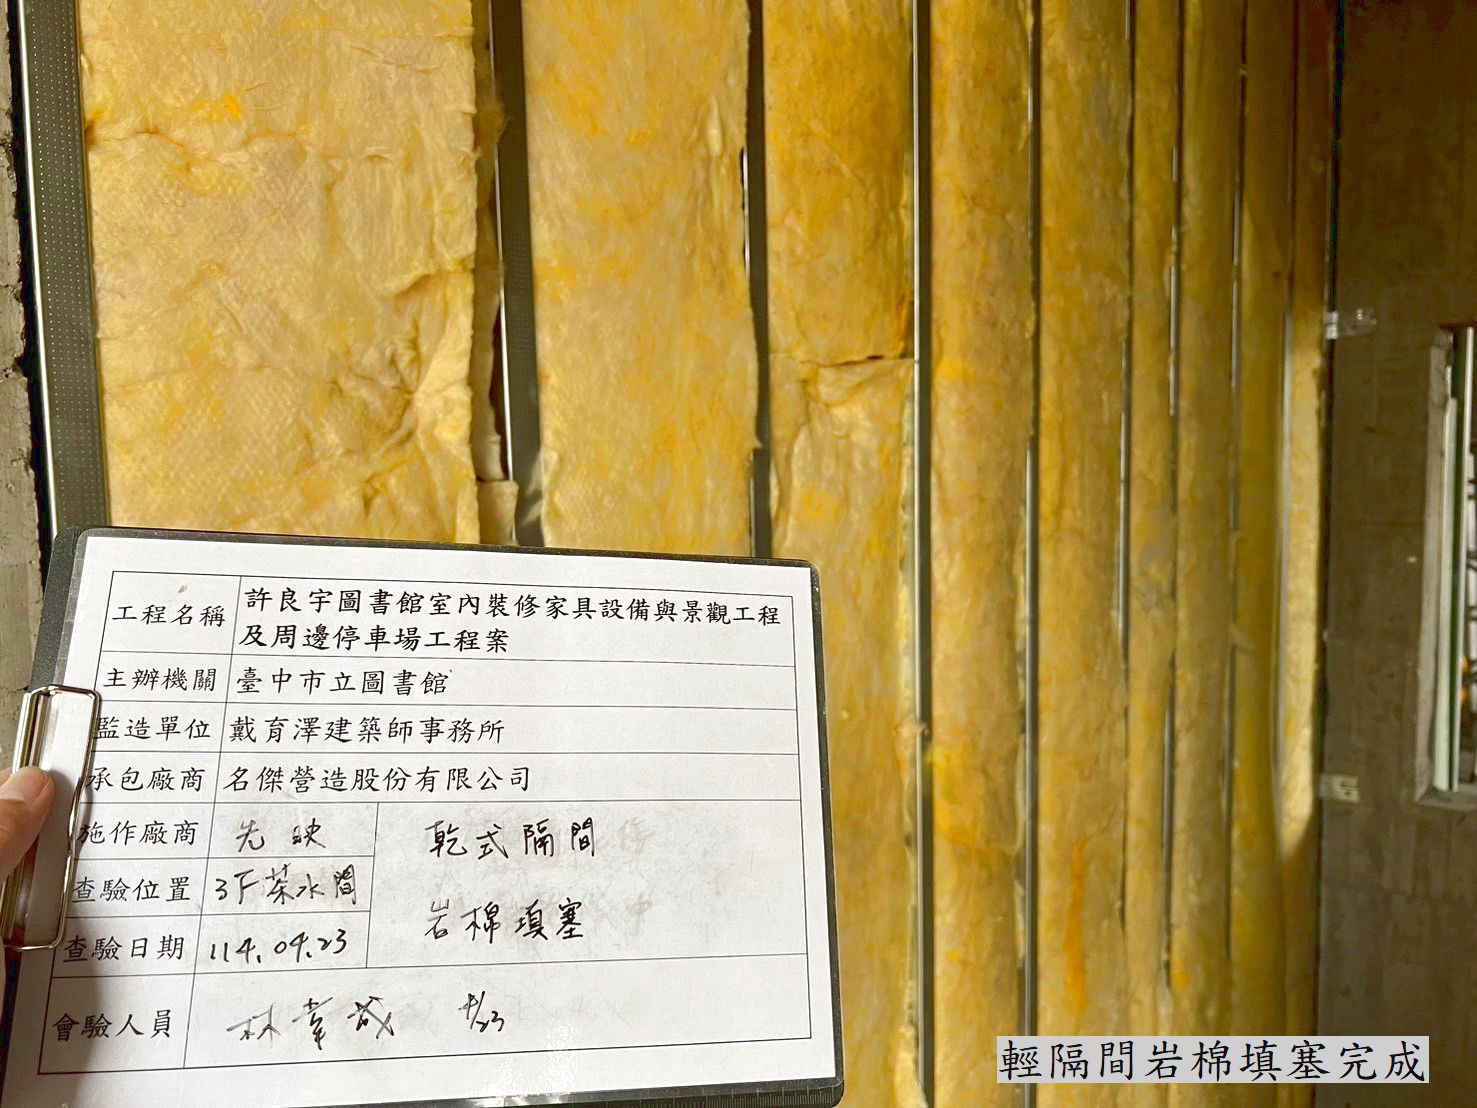 工程名稱
許良宇圖書館室內裝修家具設備與景觀工程
及周邊停車場工程案
主辦機關 臺中市立圖書館
監造單位 戴育澤建築師事務所
承包廠商 名傑營造股份有限公司
施作廠商 先映
乾式隔間
查驗位置 3F茶水間
岩棉填塞
查驗日期 114.04.23
會驗人員 林 4/23
輕隔間岩棉填塞完成